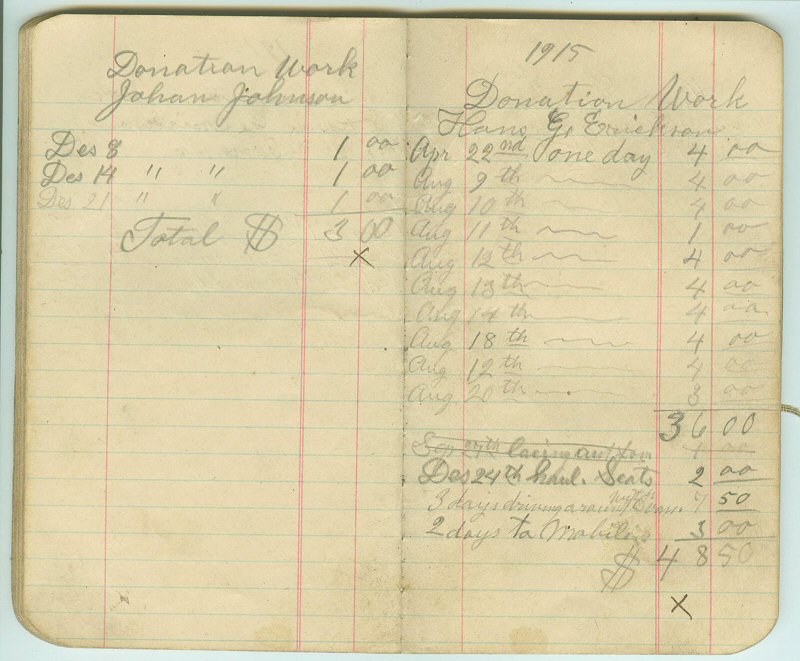 Donation Work
Johan Johnson
Des 8 1 00
Des 14 " " 1 00
Des 21 " " 1 00
Total $ 3 00
x
1915
Donation Work
Hans G. Erickson
Apr 22nd one day 4 00
Aug 9th 4 00
Aug 10th 4 00
Aug 11th 1 00
Aug 12th 4 00
Aug 13th 4 00
Aug 14th 4 00
Aug 18th 4 00
Aug 12th 4 00
Aug 20th 3 00
36 00
Sep 27th 1 00
Des 24th haul. Seats 2 00
3 days driving around with Evan. 7 50
2 days to Mobile 3 00
$ 48 50
x